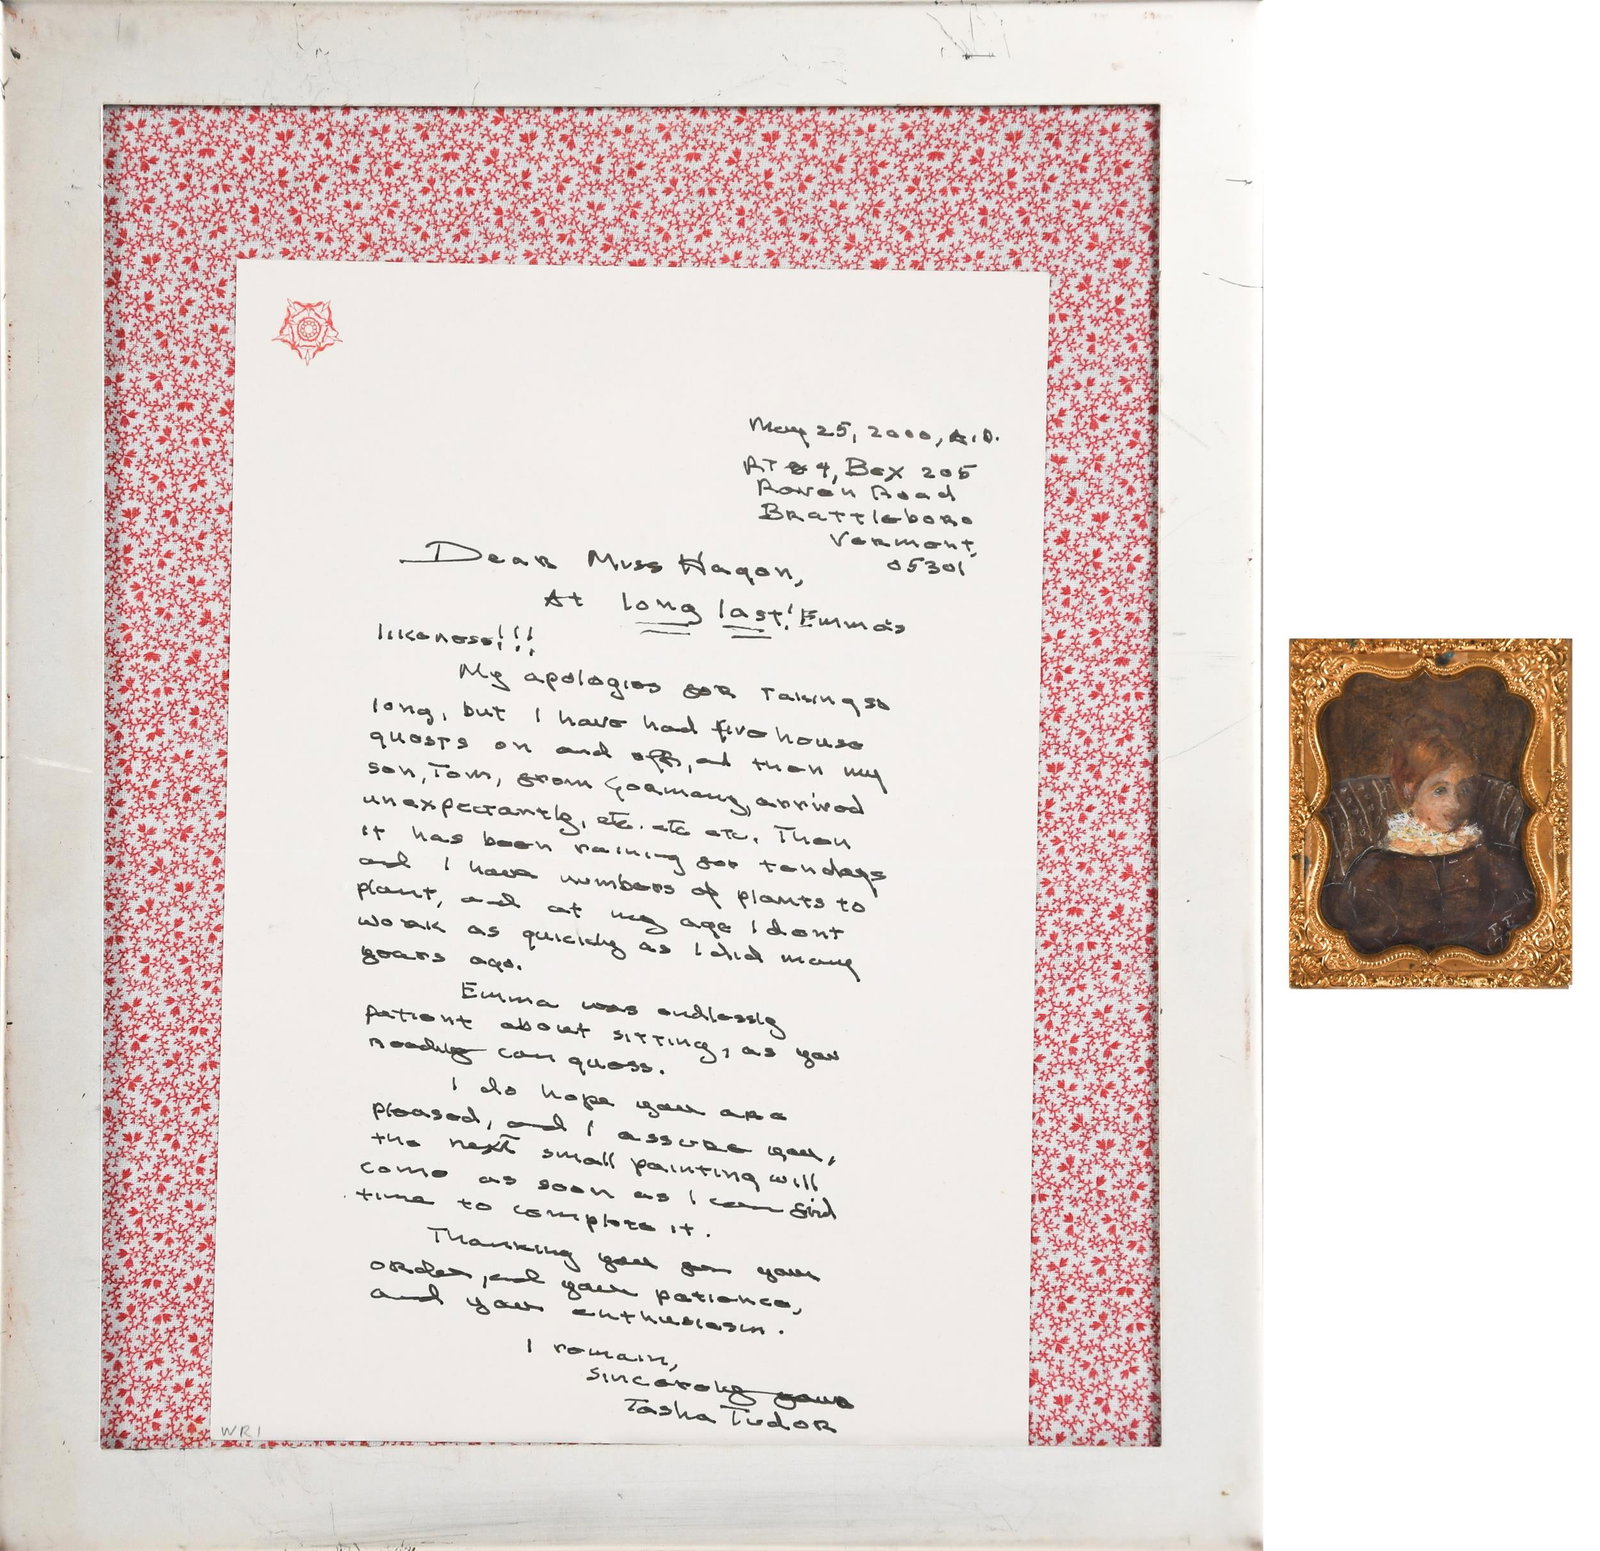 May 25, 2000, A.D.
RT 4, Box 205
Raven Road
Brattleboro
Vermont,
05301
Dear Miss Hagon,
At long last! Emma's
likeness!!!
My apologies for taking so
long, but I have had five house
guests on and off, and then my
son, Tom, from Germany, arrived
unexpectantly, etc. etc etc. Then
it has been raining for ten days
and I have numbers of plants to
plant, and at my age I dont
work as quickly as I did many
years ago.
Emma was endlessly
patient about sitting, as you
can guess.
I do hope you are
pleased, and I assure you,
the next small painting will
come as soon as I can find
time to complete it.
Thanking you for your
order, and your patience,
and your enthusiasm.
I remain,
Sincerely yours
Tasha Tudor
WR1
T.T.